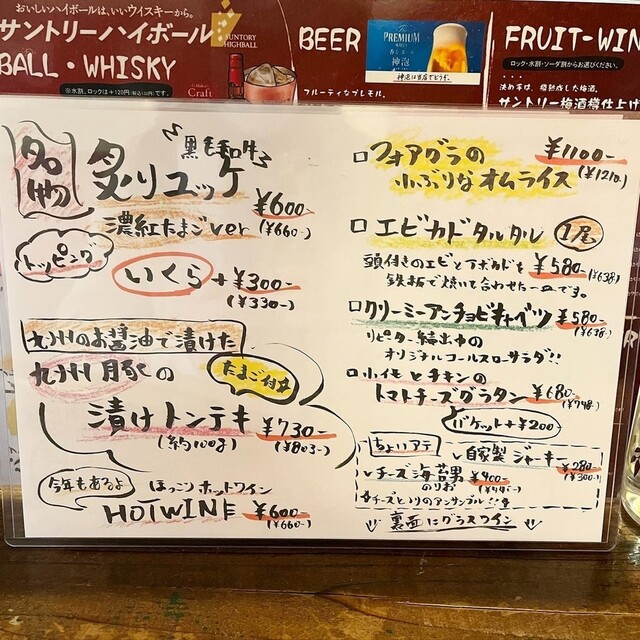 おいしいハイボールは、いいウイスキーから。
サントリーハイボール
SUNTORY
HIGHBALL
BALL・WHISKY
※水割、ロックは+120円(税込132円)です。
Craft
BEER
PREMIUM
神泡
神泡は当店でどうぞ。
フルーティなプレモル。
FRUIT-WIN
ロック・水割・ソーダ割からお選びください。
サントリー梅酒樽仕上げ
名物
黒毛和牛
炙りユッケ
¥600-
濃紅たまごver
(¥660-)
トッピング
いくら+¥300-
(¥330-)
九州のお醤油で漬けた
九州豚の
たまご付
漬けトンテキ
¥730-
(約100g)
(¥803-)
今年もあるよ
ほっこりホットワイン
HOTWINE
¥600-
(¥660-)
フォアグラの
小ぶりなオムライス
¥1100-
(¥1210-)
エビカドタルタル
1尾
頭付きのエビとアボカドを
¥580-
(¥638)
鉄板で焼いて合わせた一皿です。
クリーミーアンチョビキャベツ
¥580-
(¥638-)
リピーター続出中の
オリジナルコールスローサラダ!!
小イモとチキンの
トマトチーズグラタン
¥680-
(¥748-)
バゲット+¥200-
ちょいアテ
自家製ジャーキー
¥280-
(¥300-)
チーズ海苔男
¥400-
のりお
(¥440-)
チーズとノリのアンサンブル!!
裏面にグラスワイン